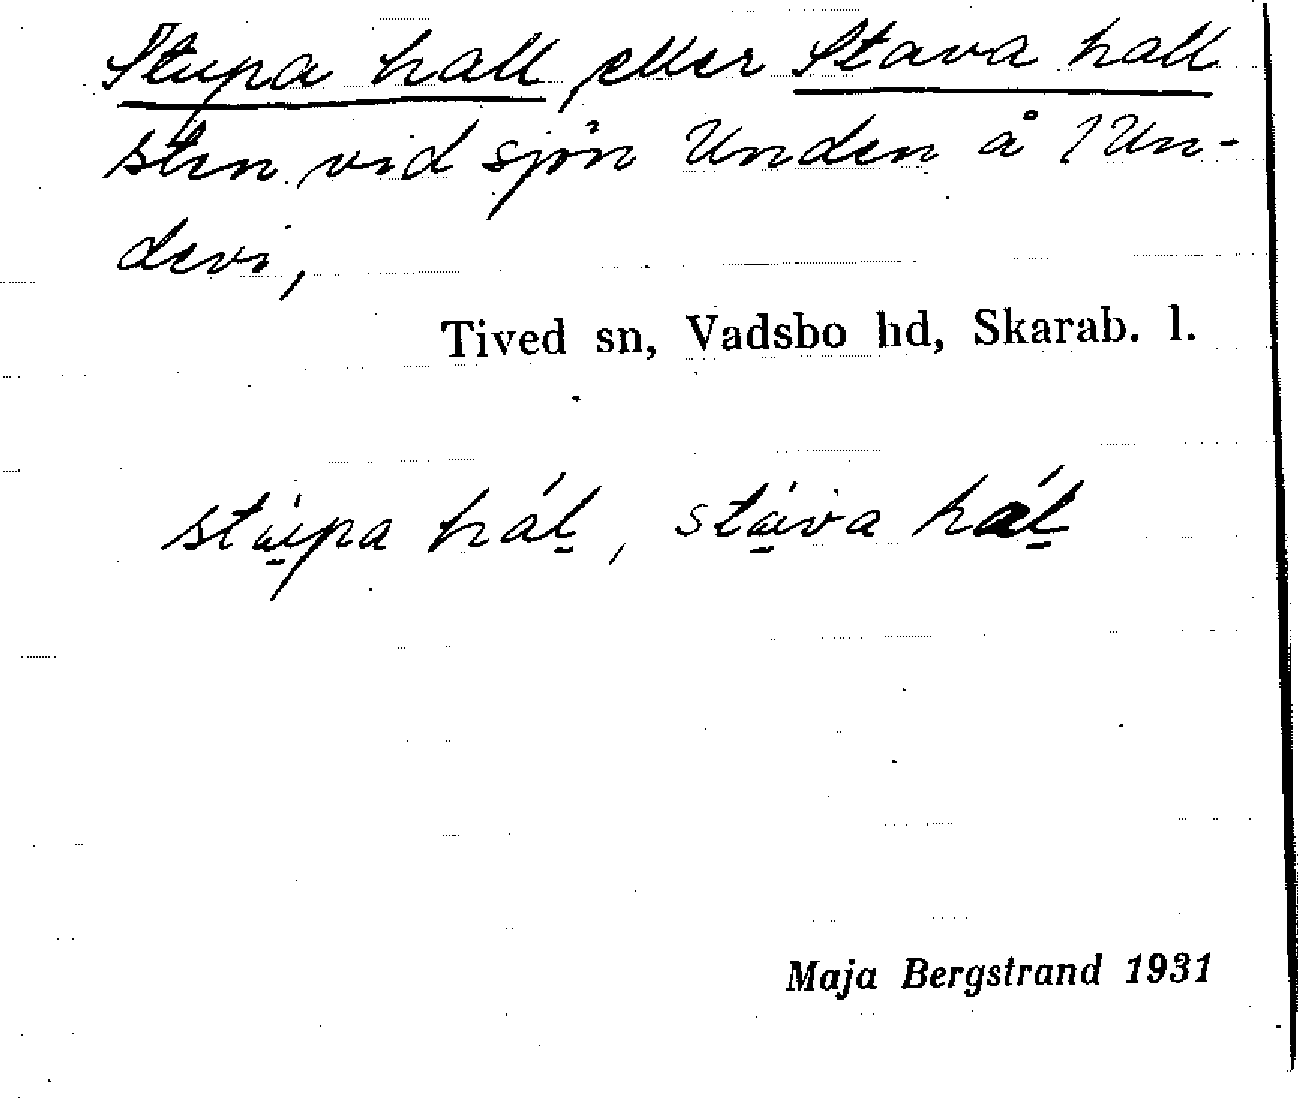 Stupa hall eller Stava hall
sten vid sjön Unden å 1 Un-
devi,
Tived sn, Vadsbo hd, Skarab. l.
stù̱pa hál̠, stà̱va hál̠
Maja Bergstrand 1931